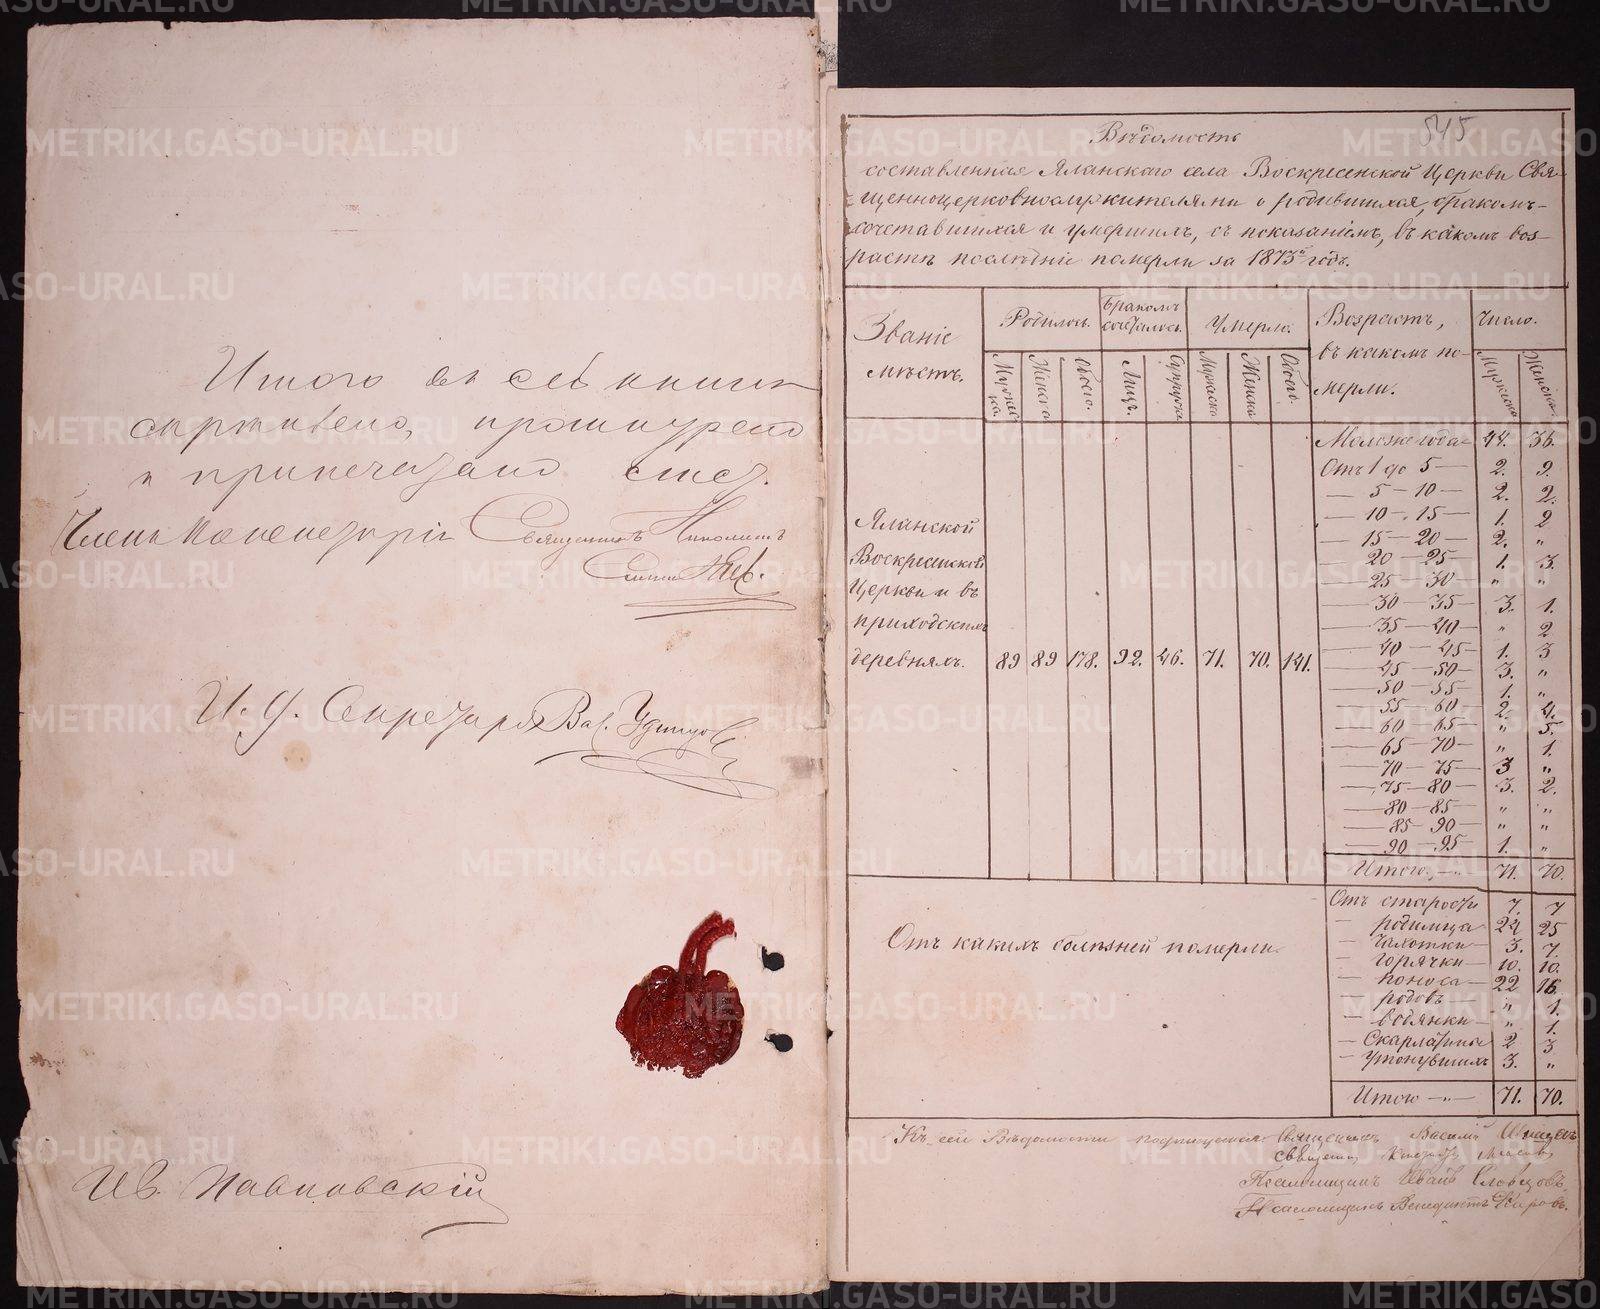 Итого въ сей книгѣ
скрѣплено, прошнуровано
и припечатано
Членъ Консисторіи Священникъ Николай
И. д. Секретаря Вас. Удинцовъ
Ив. Павловскій
545
Вѣдомость
составленная Яланскаго села Воскресенской Церкви Свя-
щенноцерковнослужителями о родившихся, бракомъ-
сочетавшихся и умершихъ, съ показаніемъ, въ какомъ воз-
растѣ послѣдніе померли за 1873й годъ.
Званіе мѣстъ.
Родилось.
Бракомъ сочеталось.
Умерло.
Возрастъ, въ какомъ померли.
Число.
Мужеска. Женска. Обоего. Лицъ. Супруж. Мужеска Женска Обоего. Мужеска Женска.
Яланской
Воскресенской
Церкви и въ
приходскихъ
деревняхъ. 89 89 178. 92. 46. 71. 70. 141.
Моложе года 44. 36.
Отъ 1 до 5 — 2. 9.
— 5 — 10 — 2. 2.
— 10 — 15 — 1. 2
— 15 — 20 — 2. „
— 20 — 25 1. 3.
— 25 — 30 — „ „
— 30 — 35 — 3. 1.
— 35 — 40 — „ 2
— 40 — 45 — 1. 3
— 45 — 50 — 3. „
— 50 — 55 — 1. „
— 55 — 60 — 2. 4.
— 60 — 65 — „ 5.
— 65 — 70 — „ 1.
— 70 — 75 — 3 „
— 75 — 80 — 3. 2.
— 80 — 85 — „ „
— 85 — 90 — „ „
— 90 — 95 — 1. „
Итого — „ — 71. 70.
Отъ какихъ болѣзней померли.
Отъ старости 7. 7
— родимца 24 25
— чахотки — 3. 7.
— горячки — 10. 10.
— поноса — 22 16.
— родовъ „ 1.
— водянки — „ 1.
— Скарлатины 2 3
— Утонувшихъ 3. „
Итого — „ — 71. 70.
Къ сей Вѣдомости подписуемся: Священникъ Василій
Священн.
Псаломщикъ Иванъ Словцовъ
Псаломщикъ Венедиктъ Кировъ.
METRIKI.GASO-URAL.RU